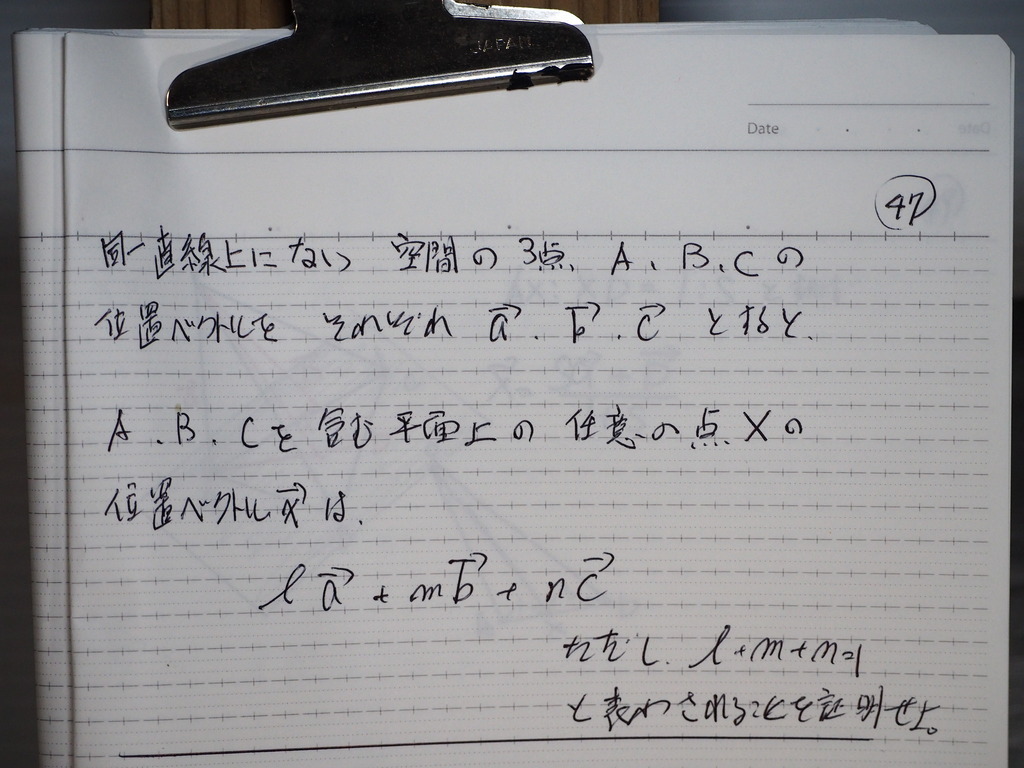 JAPAN
Date
47
同一直線上にない 空間の3点、A、B、Cの
位置ベクトルを それぞれ a→、b→、c→ とすると、
A、B、Cを含む平面上の任意の点Xの
位置ベクトルx→は、
l a→ + m b→ + n c→
ただし、l+m+n=1
と表わされることを証明せよ。